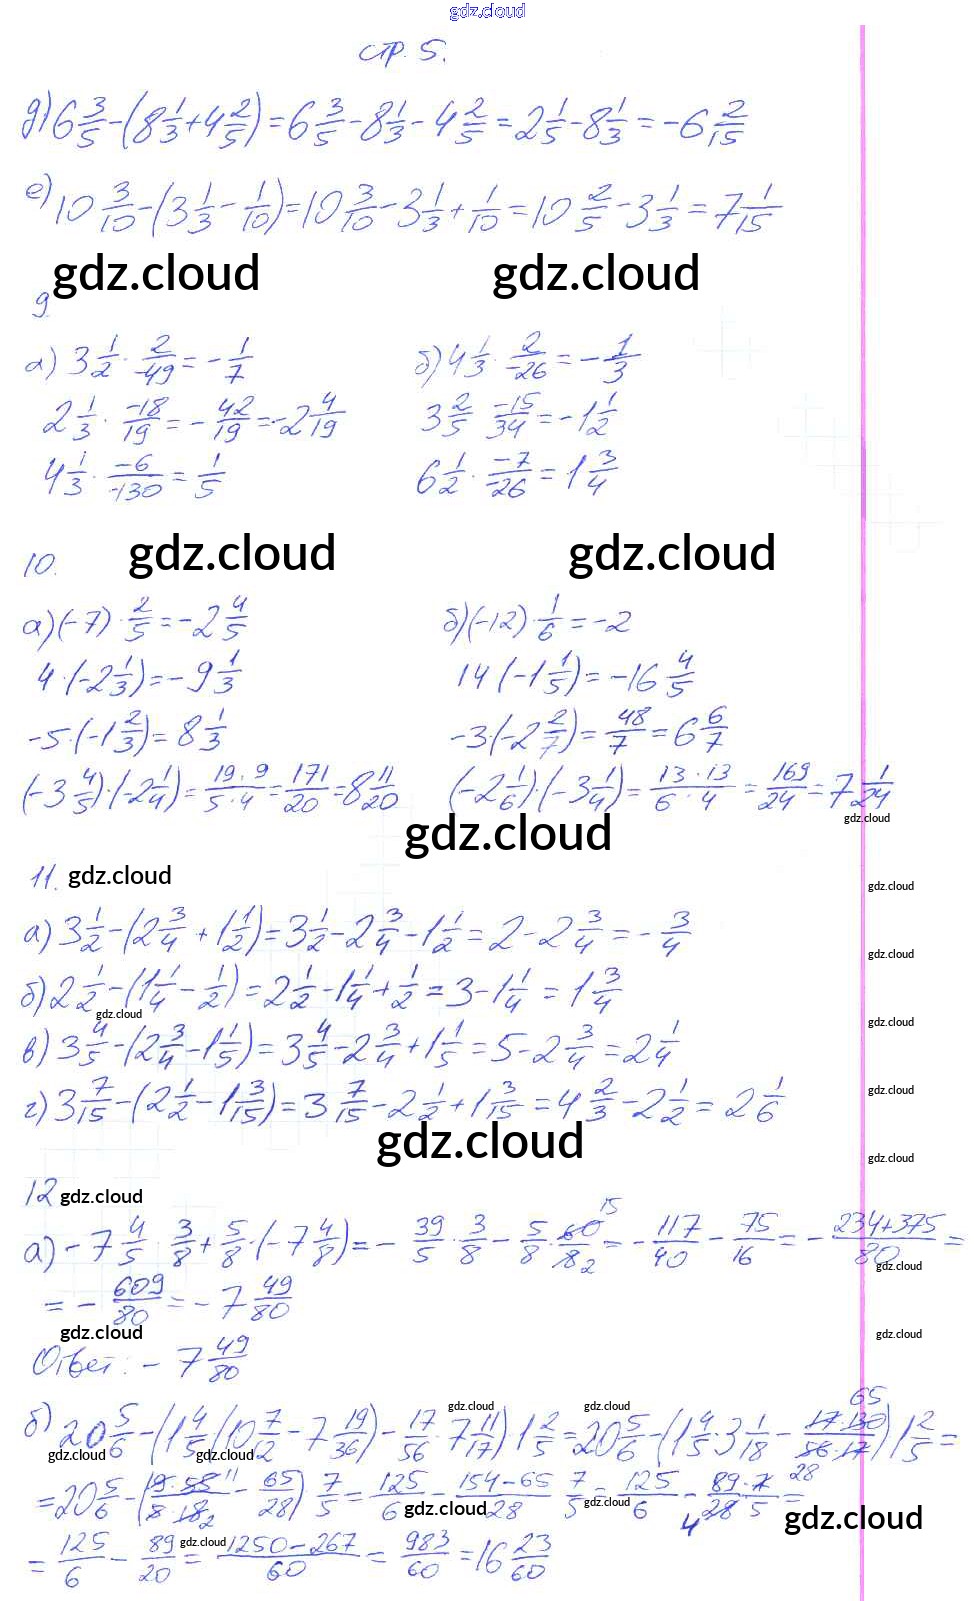 gdz.cloud
стр. 5.
д) 6 3/5 - (8 1/3 + 4 2/5) = 6 3/5 - 8 1/3 - 4 2/5 = 2 1/5 - 8 1/3 = -6 2/15
е) 10 3/10 - (3 1/3 - 1/10) = 10 3/10 - 3 1/3 + 1/10 = 10 2/5 - 3 1/3 = 7 1/15
gdz.cloud gdz.cloud
9
а) 3 1/2 · 2/-49 = - 1/7 б) 4 1/3 · 2/-26 = - 1/3
2 1/3 · -18/19 = - 42/19 = -2 4/19 3 2/5 · -15/34 = -1 1/2
4 1/3 · -6/-130 = 1/5 6 1/2 · -7/-26 = 1 3/4
10. gdz.cloud gdz.cloud
а) (-7) · 2/5 = -2 4/5 б) (-12) · 1/6 = -2
4 · (-2 1/3) = -9 1/3 14 (-1 1/5) = -16 4/5
-5 · (-1 2/3) = 8 1/3 -3 · (-2 2/7) = 48/7 = 6 6/7
(-3 4/5) · (-2 1/4) = 19 · 9/5 · 4 = 171/20 = 8 11/20 (-2 1/6) · (-3 1/4) = 13 · 13/6 · 4 = 169/24 = 7 1/24
gdz.cloud gdz.cloud
11. gdz.cloud gdz.cloud
а) 3 1/2 - (2 3/4 + 1 1/2) = 3 1/2 - 2 3/4 - 1 1/2 = 2 - 2 3/4 = - 3/4
gdz.cloud
б) 2 1/2 - (1 1/4 - 1/2) = 2 1/2 - 1 1/4 + 1/2 = 3 - 1 1/4 = 1 3/4
gdz.cloud gdz.cloud
в) 3 4/5 - (2 3/4 - 1 1/5) = 3 4/5 - 2 3/4 + 1 1/5 = 5 - 2 3/4 = 2 1/4
г) 3 7/15 - (2 1/2 - 1 3/15) = 3 7/15 - 2 1/2 + 1 3/15 = 4 2/3 - 2 1/2 = 2 1/6
gdz.cloud
gdz.cloud gdz.cloud
12 gdz.cloud
а) -7 4/5 · 3/8 + 5/8 · (-7 4/8) = - 39/5 · 3/8 - 5/8 · 60 15/8 2 = - 117/40 - 75/16 = - 234+375/80 =
gdz.cloud
= - 609/80 = -7 49/80
gdz.cloud gdz.cloud
Ответ: -7 49/80
б) 20 5/6 - (1 4/5 (10 7/12 - 7 19/36) - 17/56 · 7 11/17) 1 2/5 = 20 5/6 - (1 4/5 · 3 1/18 - 17·130 65/56·17 28) 1 2/5 =
gdz.cloud gdz.cloud gdz.cloud gdz.cloud
= 20 5/6 - (9·55 11/8·18 2 - 65/28) · 7/5 = 125/6 - 154-65/28 · 7/5 = 125/6 - 89·7/28·5 4 =
gdz.cloud gdz.cloud gdz.cloud
= 125/6 - 89/20 = 1250-267/60 = 983/60 = 16 23/60
gdz.cloud